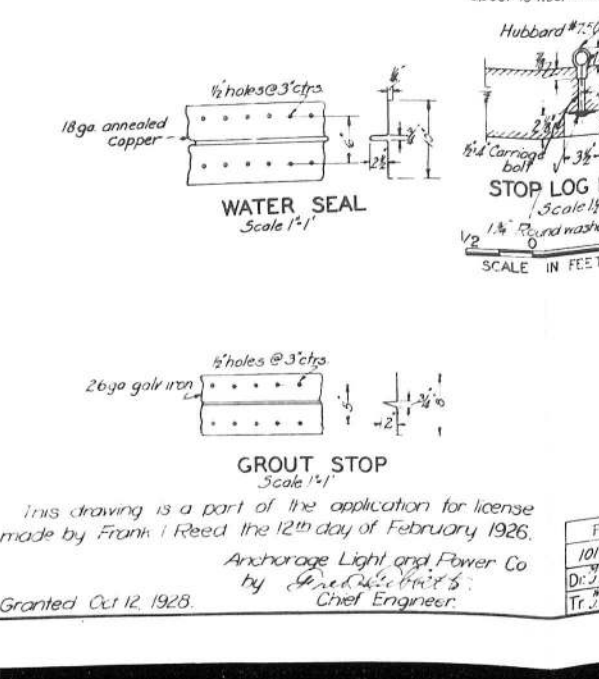 Hubbard #750
½" holes @ 3" ctrs.
18 ga. annealed
copper
6"
2½"
WATER SEAL
Scale 1"=1'
½" x 4" Carriage
bolt
3½"
STOP LOG
Scale 1½
1¾" Round wash
1/2 0
SCALE IN FEET
½" holes @ 3" ctrs.
26 ga galv iron
5"
2"
¾"
8"
GROUT STOP
Scale 1"=1'
This drawing is a part of the application for license
made by Frank I Reed the 12th day of February 1926.
Anchorage Light and Power Co
by
Chief Engineer.
Granted Oct 12, 1928.
101
Dr.
Tr.